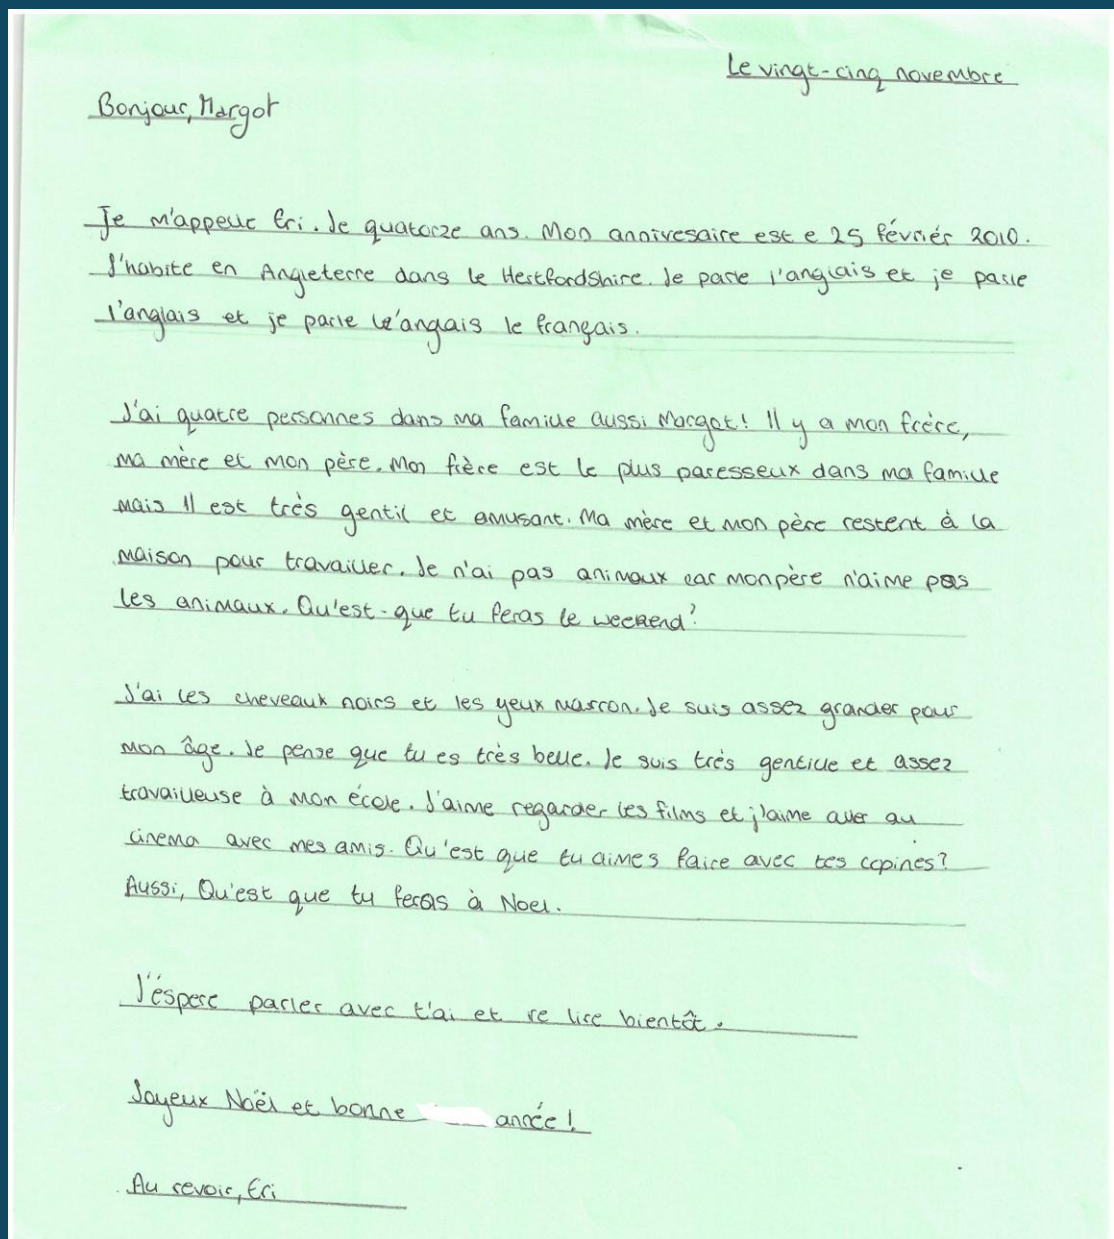 Le vingt-cinq novembre
Bonjour, Margot
Je m'appelle Eri. Je quatorze ans. Mon annivesaire est e 25 févriér 2010.
J'habite en Angleterre dans le Hertfordshire. Je parle l'anglais et je parle
l'anglais et je parle l'angais le français.
J'ai quatre personnes dans ma famille aussi Margot! Il y a mon frère,
ma mère et mon père. Mon frère est le plus paresseux dans ma famille
mais il est très gentil et amusant. Ma mère et mon père restent à la
maison pour travailler. Je n'ai pas animaux car mon père n'aime pas
les animaux. Qu'est-que tu feras le weekend?
J'ai les cheveaux noirs et les yeux marron. Je suis assez grander pour
mon âge. Je pense que tu es très belle. Je suis très gentille et assez
travailleuse à mon école. J'aime regarder les films et j'aime aller au
cinema avec mes amis. Qu'est que tu aimes faire avec tes copines?
Aussi, Qu'est que tu feras à Noel.
J'éspere parler avec t'ai et re lire bientôt.
Joyeux Noël et bonne année!
Au revoir, Eri